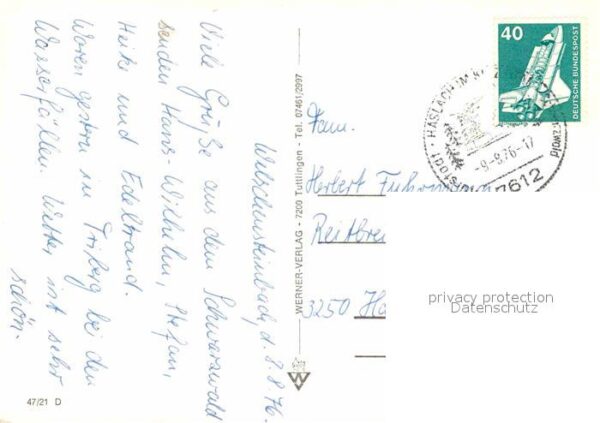 Welschensteinach, d. 8.8.76
Viele Grüße aus dem Schwarzwald
senden Hans-Wilhelm, Stefan,
Heike und Edeltraud.
Waren gestern in Triberg bei den
Wasserfällen. Wetter ist sehr
schön.
47/21 D
WERNER-VERLAG - 7200 Tuttlingen - Tel. 07461/2997
W
40
DEUTSCHE BUNDESPOST
HASLACH IM
-9.-8.76-17
7612
Fam.
Herbert
Reitbre
3250 Ha
privacy protection
Datenschutz